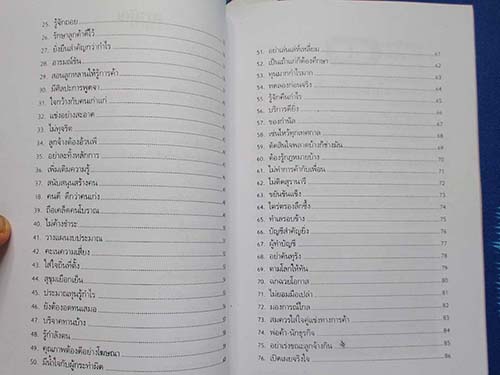 25. รู้จักถอย
26. รักษาลูกค้าดีไว้
27. ยั่งยืนสำคัญกว่ากำไร
28. อารมณ์ขัน
29. สอนลูกหลานให้รู้การค้า
30. มีศิลปะการพูดจา
31. ใจกว้างกับคนเก่าแก่
32. แข่งอย่างสะอาด
33. ไม่ทุจริต
34. ลูกจ้างต้องอ้วนพี
35. อย่าละทิ้งหลักการ
36. เพิ่มเติมความรู้
37. สนับสนุนสร้างคน
38. คนดี ดีกว่าคนเก่ง
39. ถือเคล็ดคนโบราณ
40. ไม่ค้างชำระ
41. วางแผนงบประมาณ
42. คะเนความเสี่ยง
43. ใส่ใจถิ่นที่ตั้ง
44. สุขุมเยือกเย็น
45. ประมาณทุนรู้กำไร
46. ยังต้องอดทนเสมอ
47. บริจาคทานบ้าง
48. รู้กำลังตน
49. คุณภาพต้องดีอย่างโฆษณา
50. มีน้ำใจกับผู้กระทำผิด
51. อย่าเล่นแต่ที่เหลี่ยม 61
52. เป็นเถ้าแก่ก็ต้องศึกษา 62
53. ทุนมากกำไรมาก 63
54. ทดลองก่อนจริง 64
55. รู้จักคืนกำไร 65
56. บริการดียิ่ง 66
57. ของกำนัล 67
58. เซ่นไหว้ทุกเทศกาล 68
59. ตัดสินใจพลาดบ้างก็ช่างมัน 69
60. ต้องรู้กฎหมายบ้าง 70
61. ไม่ทำการค้ากับเพื่อน 71
62. ไม่ติดสุรานารี 72
63. ขยันขันแข็ง 73
64. ไตร่ตรองลึกซึ้ง 74
65. ทำเลรอบข้าง 75
66. บัญชีสำคัญยิ่ง 76
67. ผู้ทำบัญชี 77
68. อย่าค้นทุรัง 78
69. ตามโลกให้ทัน 79
70. ฉกฉวยโอกาส 80
71. ไม่ยอมมือเปล่า 81
72. มองการณ์ไกล 82
73. สมควรใส่ใจคู่แข่งทางการค้า 83
74. พ่อค้า-นักธุรกิจ 84
75. อย่าเร่งชนะลูกจ้างเกิน 85
76. เปิดเผยจริงใจ 86